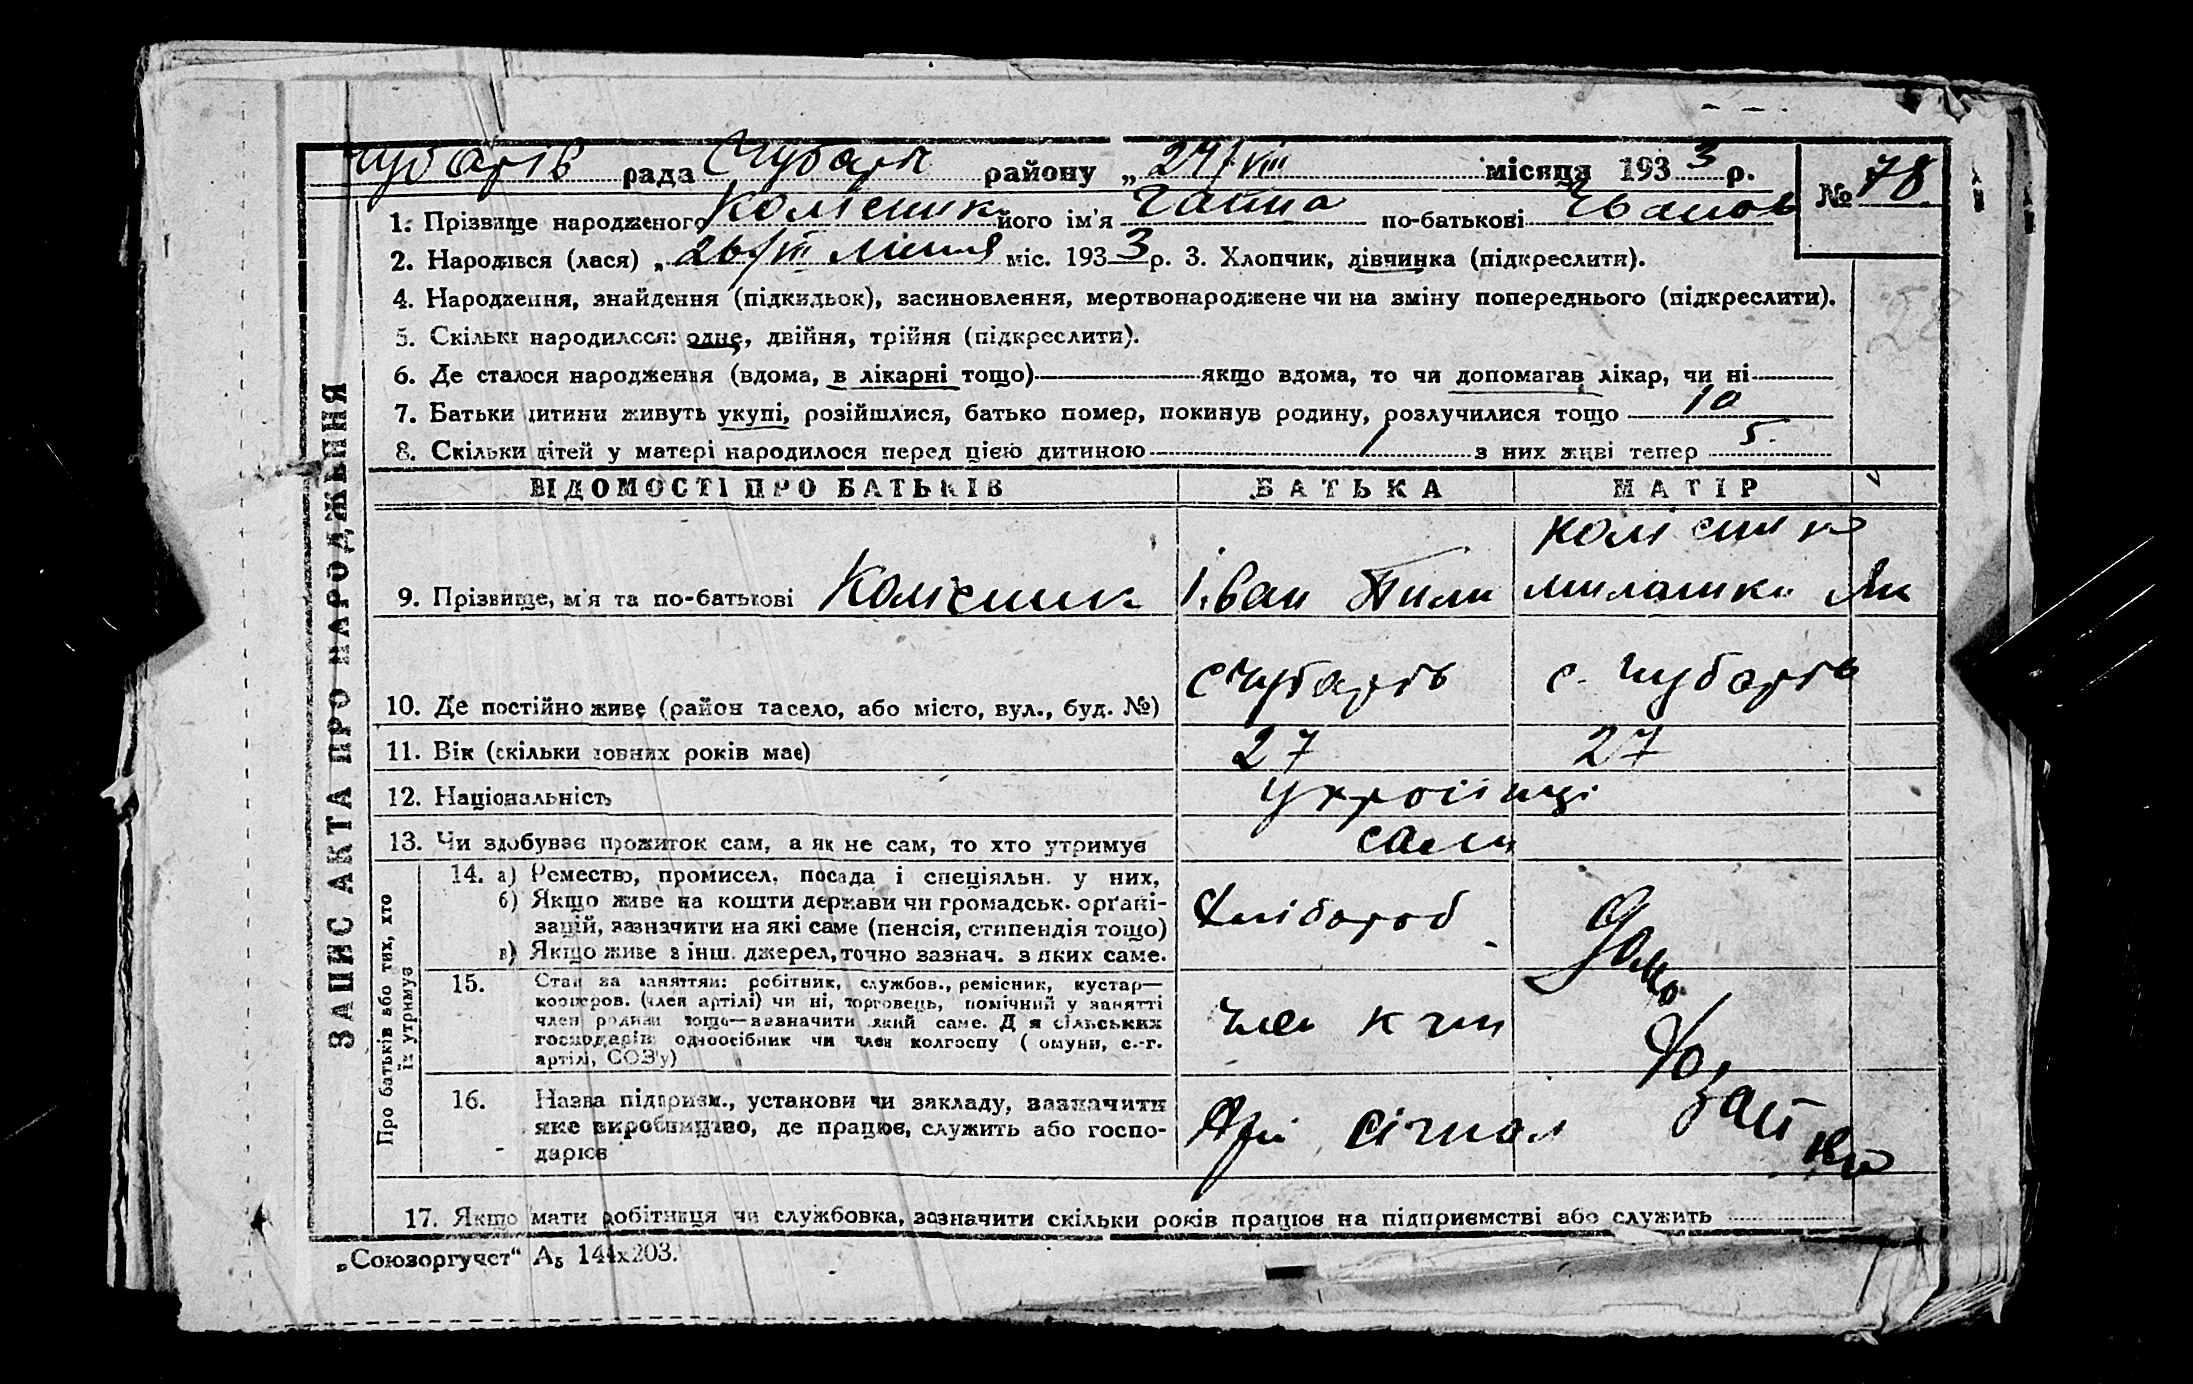 Чубарів рада Чубарів району „ 27/VIII місяця 1933 р. № 78
1. Прізвище народженого Колісник його ім'я Ганна по-батькові Іванов
2. Народився (лася) „ 26/ міс. 1933 р. 3. Хлопчик, дівчинка (підкреслити).
4. Народження, знайдення (підкидьок), засиновлення, мертвонароджене чи на зміну попереднього (підкреслити).
5. Скількі народилося: одне, двійня, трійня (підкреслити).
6. Де сталося народження (вдома, в лікарні тощо) якщо вдома, то чи допомагав лікар, чи ні
7. Батьки дитини живуть укупі, розійшлися, батько помер, покинув родину, розлучилися тощо 10
8. Скільки дітей у матері народилося перед цією дитиною 1 з них живі тепер 5.
ЗАПИС АКТА ПРО НАРОДЖЕННЯ
ВІДОМОСТІ ПРО БАТЬКІВ БАТЬКА МАТІР
Колісник
9. Прізвище, ім'я та по-батькові Колісник Іван Пили Милашки Як
10. Де постійно живе (район та село, або місто, вул., буд. №) с Чубарів с. Чубарів
11. Вік (скільки повних років має) 27 27
12. Національність Українці
13. Чи здобуває прожиток сам, а як не сам, то хто утримує сами
Про батьків або тих, хто
їх утримує
14. а) Ремество, промисел, посада і спеціяльн. у них,
б) Якщо живе на кошти держави чи громадськ. орґані-
зацій, зазначити на які саме (пенсія, стипендія тощо)
в) Якщо живе з інш. джерел, точно зазнач. з яких саме.
Хлібороб
Домо
15. Стан за заняттям: робітник, службов., ремісник, кустар—
коопєров. (член артілі) чи ні, торговець, помічний у занятті
член родини тощо—зазначити який саме. Для сільських
господарів: одноосібник чи член колгоспу (комуни, с.-г.
артілі, СОЗ'у)
член
Хозяйка
16. Назва підприєм., установи чи закладу, зазначити
яке виробництво, де працює, служить або госпо-
дарює
Арт Сігнал
17. Якщо мати робітниця чи службовка, зазначити скільки років працює на підприємстві або служить
„Союзоргучет“ А₅ 144х203.